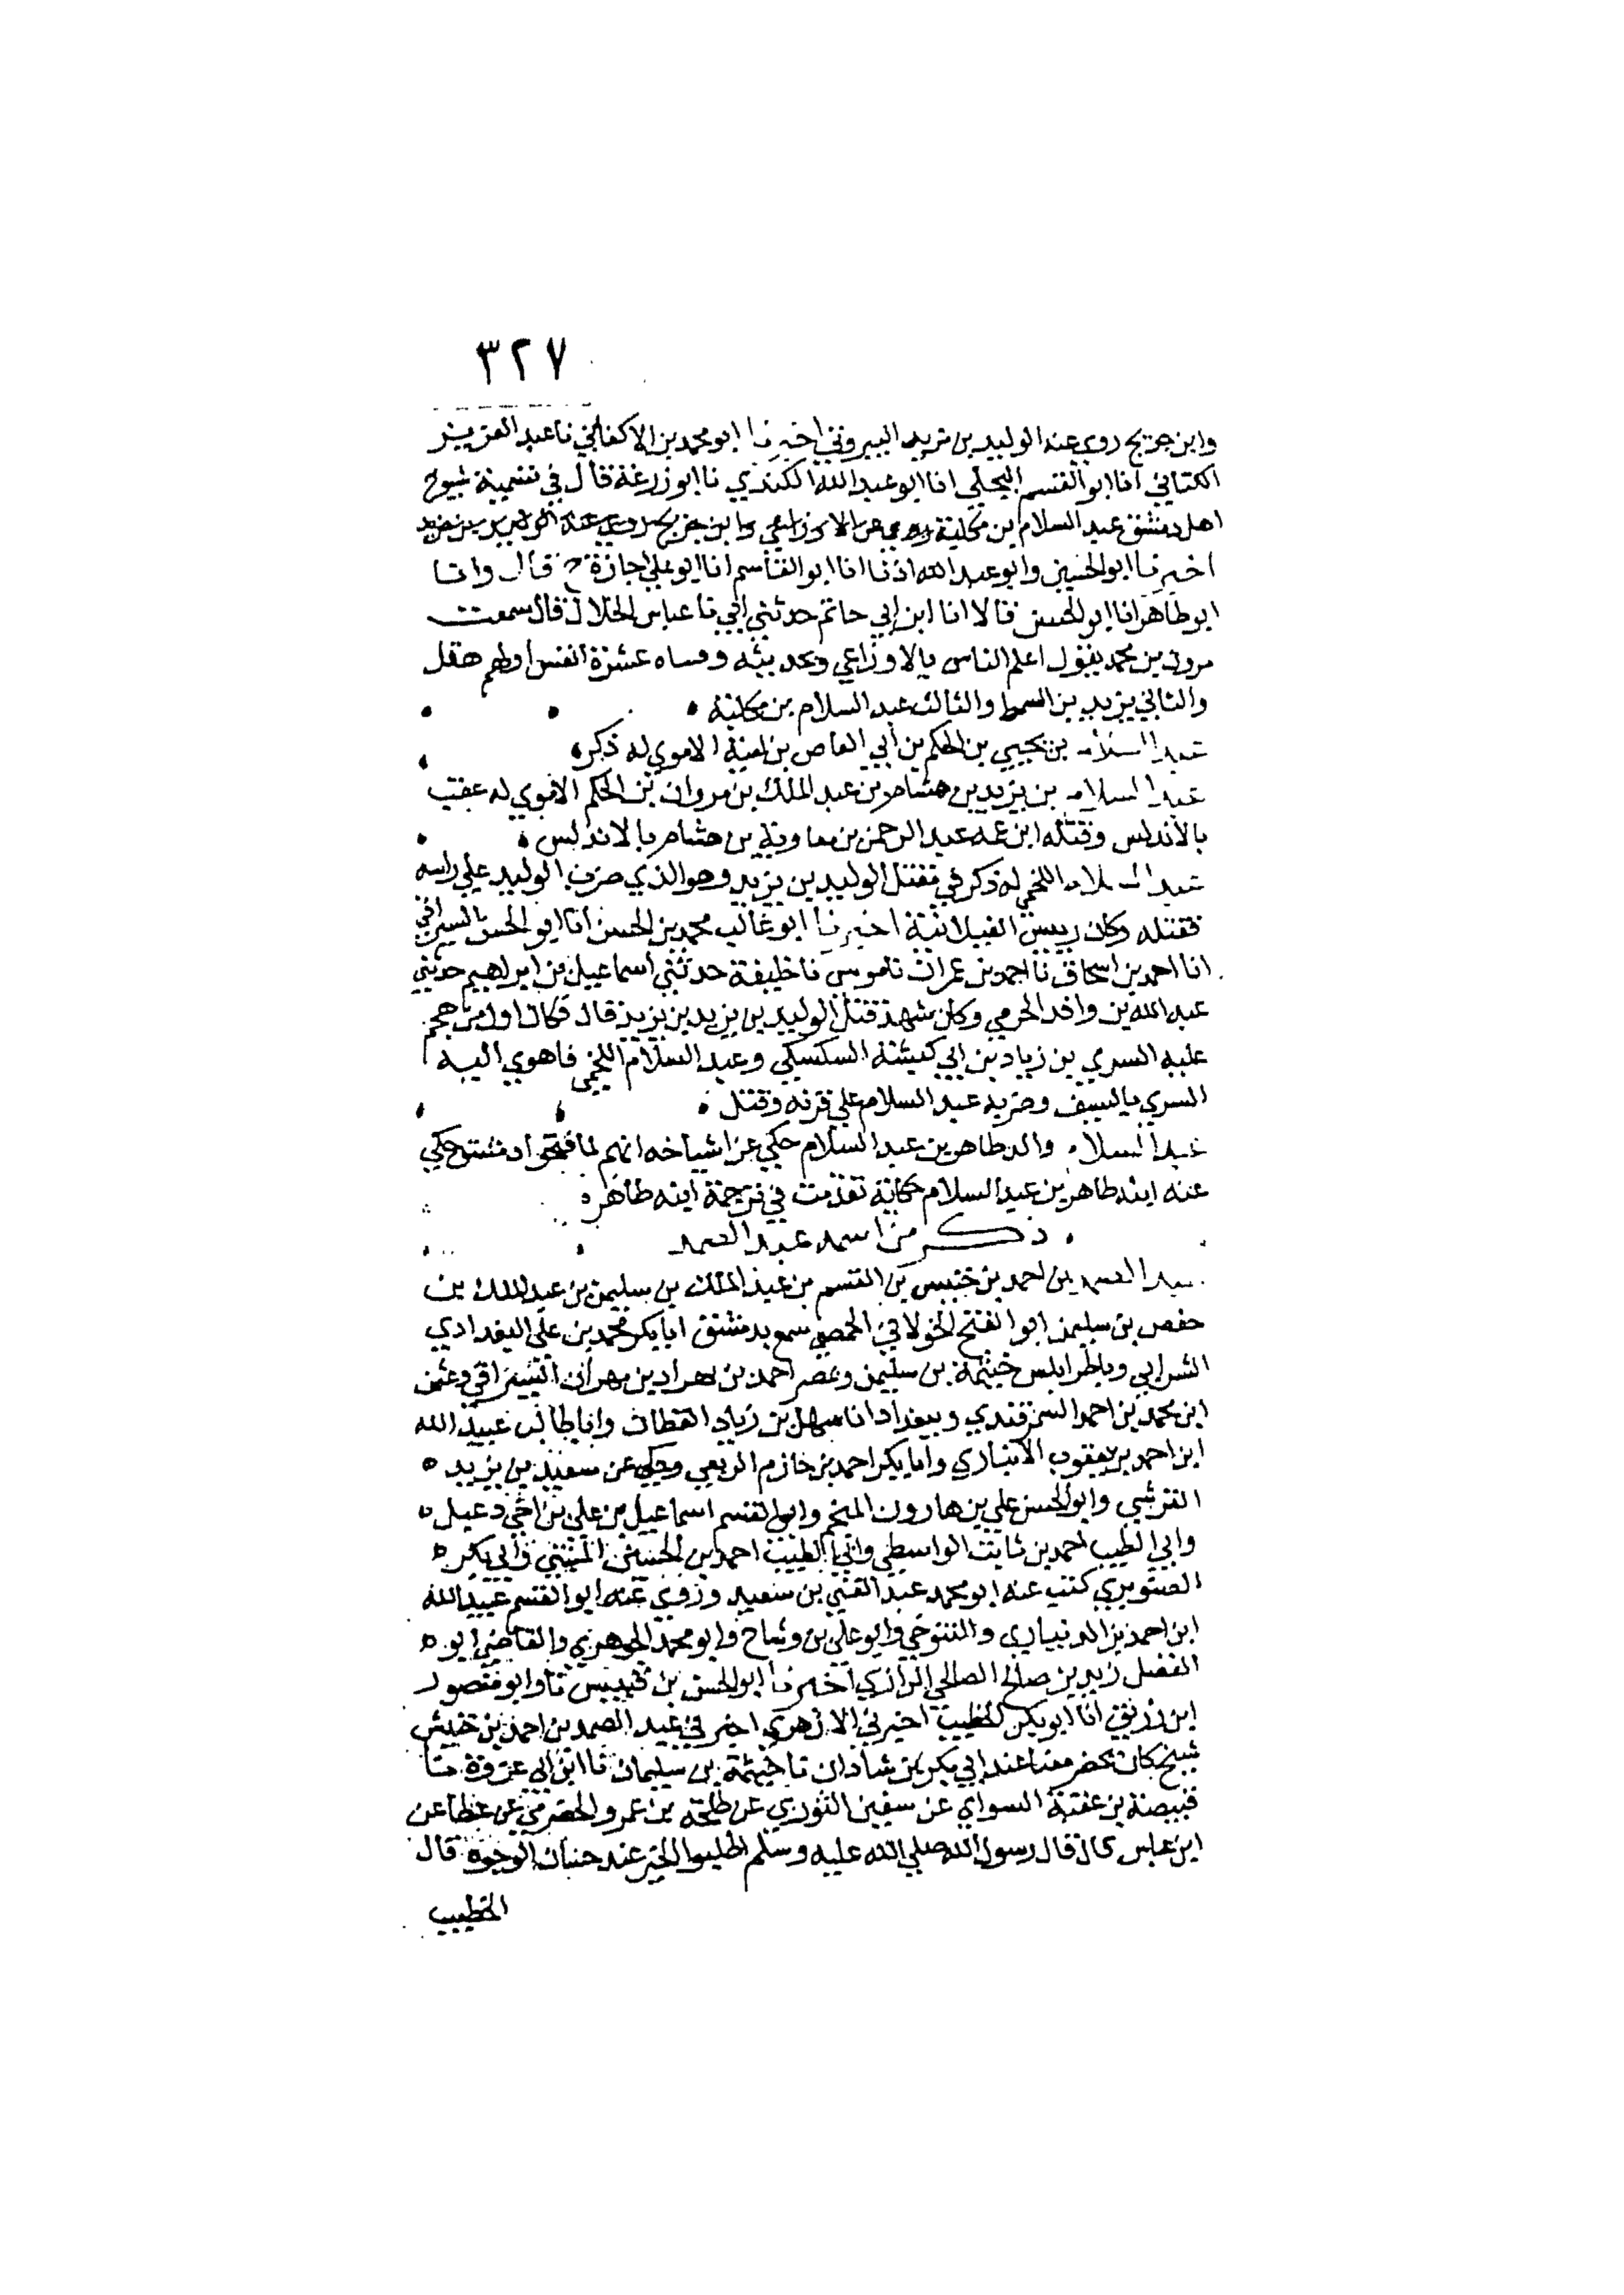 ٣٢٧
وابن جريج روى عنه الوليد بن مزيد البيروتي اخبرنا ابو محمد بن الاكفاني نا عبد العزيز
الكتاني انا ابو القسم البجلي انا ابو عبد الله الكندي نا ابو زرعة قال في تسمية شيوخ
اهل دمشق عبد السلام بن مكلبة روى عن الاوزاعي وابن جريج روى عنه الوليد بن مزيد
اخبرنا ابو الحسين وابو عبد الله اذنا انا ابو القاسم انا ابو علي اجازة ح قال وانا
ابو طاهر انا ابو الحسن قالا انا ابن ابي حاتم حدثني ابي نا عباس الخلال قال سمعت
مروان بن محمد يقول اعلم الناس بالاوزاعي وبحديثه وفتياه عشرة انفس اولهم هقل
والثاني يزيد بن السمط والثالث عبد السلام بن مكلبة
عبد السلام بن يحيى بن الحكم بن أبي العاص بن امية الاموي له ذكر
عبد السلام بن يزيد بن هشام بن عبد الملك بن مروان بن الحكم الاموي له عقب
بالأندلس وقتله ابن عمه عبد الرحمن بن معاوية بن هشام بالاندلس
عبد السلام اللخمي له ذكر في مقتل الوليد بن يزيد وهو الذي ضرب الوليد على راسه
فقتله وكان رييس الغيلانية اخبرنا ابو غالب محمد بن الحسن انا ابو الحسن السيرافي
انا احمد بن اسحاق نا احمد بن عمران نا موسى نا خليفة حدثني اسماعيل بن ابراهيم حدثني
عبد الله بن واقد الجرمي وكان شهد قتل الوليد بن يزيد بن يزيد قال فكان اول من هجم
عليه السري بن زياد بن ابي كبيشة السكسكي وعبد السلام اللخمي فاهوى اليه
السري بالسيف وضربه عبد السلام على قرنه وقتل
عبد السلام والد طاهر بن عبد السلام حكى عن اشياخه انهم لما فتحوا دمشق حكى
عنه ابنه طاهر بن عبد السلام حكاية تقدمت في ترجمة ابنه طاهر
ذكر من اسمه عبد الصمد
عبد الصمد بن احمد بن خنبس بن القسم بن عبد الملك بن سليمن بن عبد الملك بن
حفص بن سليمن ابو الفتح الخولاني الحمصي سمع بدمشق ابا بكر محمد بن علي البغدادي
الشرابي وباطرابلس خيثمة بن سليمن وبمصر احمد بن بهراد بن مهران السيرافي وعثمن
ابن محمد بن احمد السمرقندي وببغداد ابا سهل بن زياد القطان وابا طالب عبيد الله
ابن احمد بن يعقوب الانباري وابا بكر احمد بن خازم الربعي وحكى عن سعيد بن يزيد
القرشي وابو الحسن علي بن هارون المنجم وابو القسم اسماعيل بن علي بن اخي دعبل
وابي الطيب احمد بن ثابت الواسطي وابي الطيب احمد بن الحسين المتنبي وابي بكر
الصنوبري كتب عنه ابو محمد عبد الغني بن سعيد وروى عنه ابو القسم عبيد الله
ابن احمد بن الدنباري والتنوخي وابو علي بن وشاح وابو محمد الجوهري والقاضي ابو
الفضل زيد بن صالح الصالحي الرازي اخبرنا ابو الحسن بن قبيس نا وابو منصور
ابن زريق انا ابو بكر الخطيب اخبرني الازهري اخبرني عبد الصمد بن احمد بن خنبش
شيخ كان يحضر معنا عند ابي بكر بن شاذان نا خيثمة بن سليمان نا ابن ابي غرزة نا
قبيصة بن عقبة السواي عن سفين الثوري عن طلحة بن عمرو الحضرمي عن عطا عن
ابن عباس قال قال رسول الله صلى الله عليه وسلم اطلبوا الخير عند حسان الوجوه قال
الخطيب